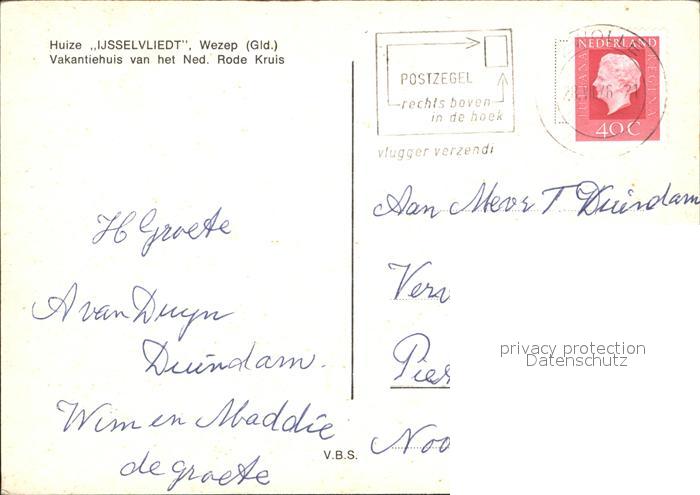 Huize „IJSSELVLIEDT", Wezep (Gld.)
Vakantiehuis van het Ned. Rode Kruis
POSTZEGEL
rechts boven
in de hoek
vlugger verzendi
NEDERLAND
JULIANA REGINA
40 C
Aan Mevr T Duindam
Verv
Pies
Noo
privacy protection
Datenschutz
H Groete
A van Duyn
Duindam.
Wim en Maddie
de groete
V.B.S.